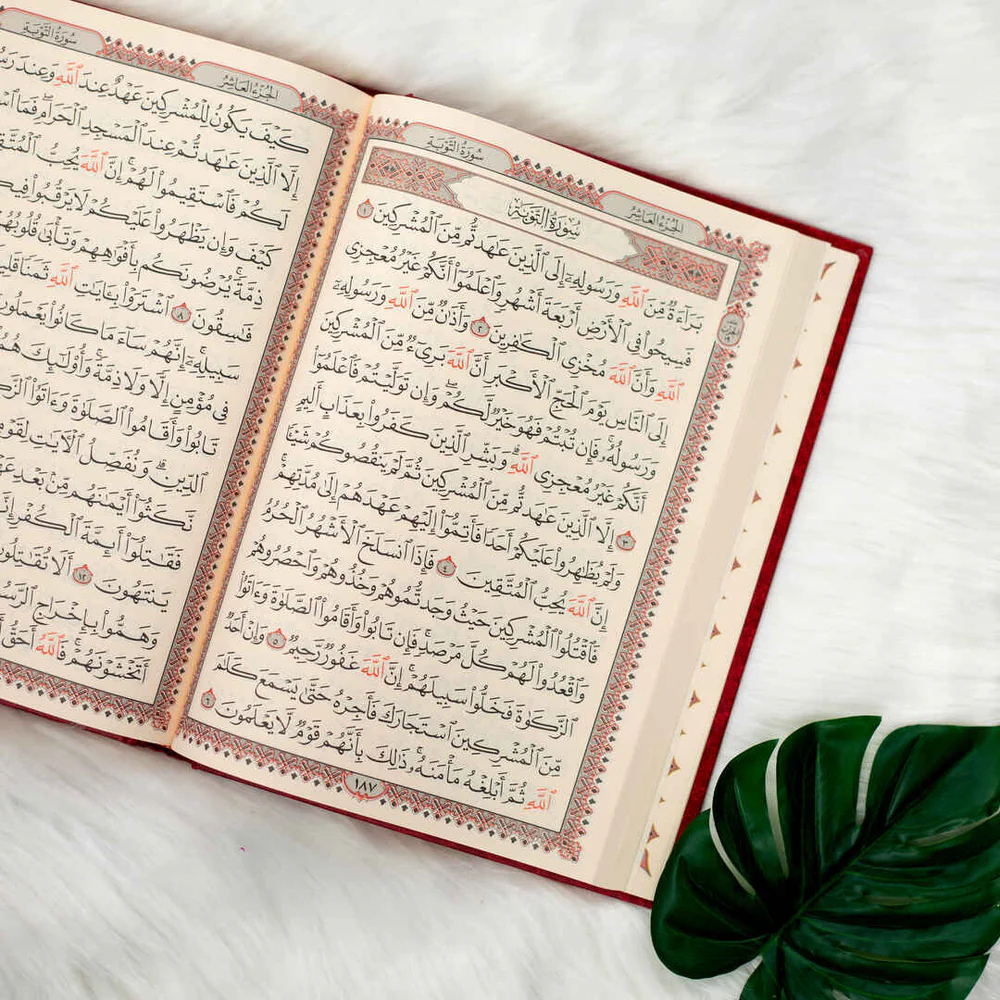 سُورَةُ التَّوْبَةِ
الجُزْءُ العَاشِرُ
سُورَةُ التَّوْبَةِ
بَرَآءَةٌ مِّنَ ٱللَّهِ وَرَسُولِهِۦٓ إِلَى ٱلَّذِينَ عَٰهَدتُّم مِّنَ ٱلْمُشْرِكِينَ ١
فَسِيحُوا۟ فِى ٱلْأَرْضِ أَرْبَعَةَ أَشْهُرٍ وَٱعْلَمُوٓا۟ أَنَّكُمْ غَيْرُ مُعْجِزِى
ٱللَّهِ وَأَنَّ ٱللَّهَ مُخْزِى ٱلْكَٰفِرِينَ ٢ وَأَذَٰنٌ مِّنَ ٱللَّهِ وَرَسُولِهِۦٓ
إِلَى ٱلنَّاسِ يَوْمَ ٱلْحَجِّ ٱلْأَكْبَرِ أَنَّ ٱللَّهَ بَرِىٓءٌ مِّنَ ٱلْمُشْرِكِينَ
وَرَسُولُهُۥ فَإِن تُبْتُمْ فَهُوَ خَيْرٌ لَّكُمْ وَإِن تَوَلَّيْتُمْ فَٱعْلَمُوٓا۟
أَنَّكُمْ غَيْرُ مُعْجِزِى ٱللَّهِ وَبَشِّرِ ٱلَّذِينَ كَفَرُوا۟ بِعَذَابٍ أَلِيمٍ
٣ إِلَّا ٱلَّذِينَ عَٰهَدتُّم مِّنَ ٱلْمُشْرِكِينَ ثُمَّ لَمْ يَنقُصُوكُمْ شَيْـًٔا
وَلَمْ يُظَٰهِرُوا۟ عَلَيْكُمْ أَحَدًا فَأَتِمُّوٓا۟ إِلَيْهِمْ عَهْدَهُمْ إِلَىٰ مُدَّتِهِمْ
إِنَّ ٱللَّهَ يُحِبُّ ٱلْمُتَّقِينَ ٤ فَإِذَا ٱنسَلَخَ ٱلْأَشْهُرُ ٱلْحُرُمُ
فَٱقْتُلُوا۟ ٱلْمُشْرِكِينَ حَيْثُ وَجَدتُّمُوهُمْ وَخُذُوهُمْ وَٱحْصُرُوهُمْ
وَٱقْعُدُوا۟ لَهُمْ كُلَّ مَرْصَدٍ فَإِن تَابُوا۟ وَأَقَامُوا۟ ٱلصَّلَوٰةَ وَءَاتَوُا۟
ٱلزَّكَوٰةَ فَخَلُّوا۟ سَبِيلَهُمْ إِنَّ ٱللَّهَ غَفُورٌ رَّحِيمٌ ٥ وَإِنْ أَحَدٌ
مِّنَ ٱلْمُشْرِكِينَ ٱسْتَجَارَكَ فَأَجِرْهُ حَتَّىٰ يَسْمَعَ كَلَٰمَ
ٱللَّهِ ثُمَّ أَبْلِغْهُ مَأْمَنَهُۥ ذَٰلِكَ بِأَنَّهُمْ قَوْمٌ لَّا يَعْلَمُونَ ٦
١٨٧
الجُزْءُ العَاشِرُ
سُورَةُ التَّوْبَةِ
كَيْفَ يَكُونُ لِلْمُشْرِكِينَ عَهْدٌ عِندَ ٱللَّهِ وَعِندَ
إِلَّا ٱلَّذِينَ عَٰهَدتُّمْ عِندَ ٱلْمَسْجِدِ ٱلْحَرَامِ فَمَا
لَكُمْ فَٱسْتَقِيمُوا۟ لَهُمْ إِنَّ ٱللَّهَ يُحِبُّ
كَيْفَ وَإِن يَظْهَرُوا۟ عَلَيْكُمْ لَا يَرْقُبُوا۟
ذِمَّةً يُرْضُونَكُم بِأَفْوَٰهِهِمْ وَتَأْبَىٰ
فَٰسِقُونَ ٨ ٱشْتَرَوْا۟ بِـَٔايَٰتِ ٱللَّهِ ثَمَنًا
سَبِيلِهِۦٓ إِنَّهُمْ سَآءَ مَا كَانُوا۟ يَعْمَلُونَ
فِى مُؤْمِنٍ إِلًّا وَلَا ذِمَّةً وَأُو۟لَٰٓئِكَ
تَابُوا۟ وَأَقَامُوا۟ ٱلصَّلَوٰةَ وَءَاتَوُا۟
ٱلدِّينِ وَنُفَصِّلُ ٱلْءَايَٰتِ
نَّكَثُوٓا۟ أَيْمَٰنَهُم مِّنۢ بَعْدِ
فَقَٰتِلُوٓا۟ أَئِمَّةَ ٱلْكُفْرِ
يَنتَهُونَ ١٢ أَلَا
وَهَمُّوا۟ بِإِخْرَاجِ
أَتَخْشَوْنَهُمْ فَٱللَّهُ أَحَقُّ